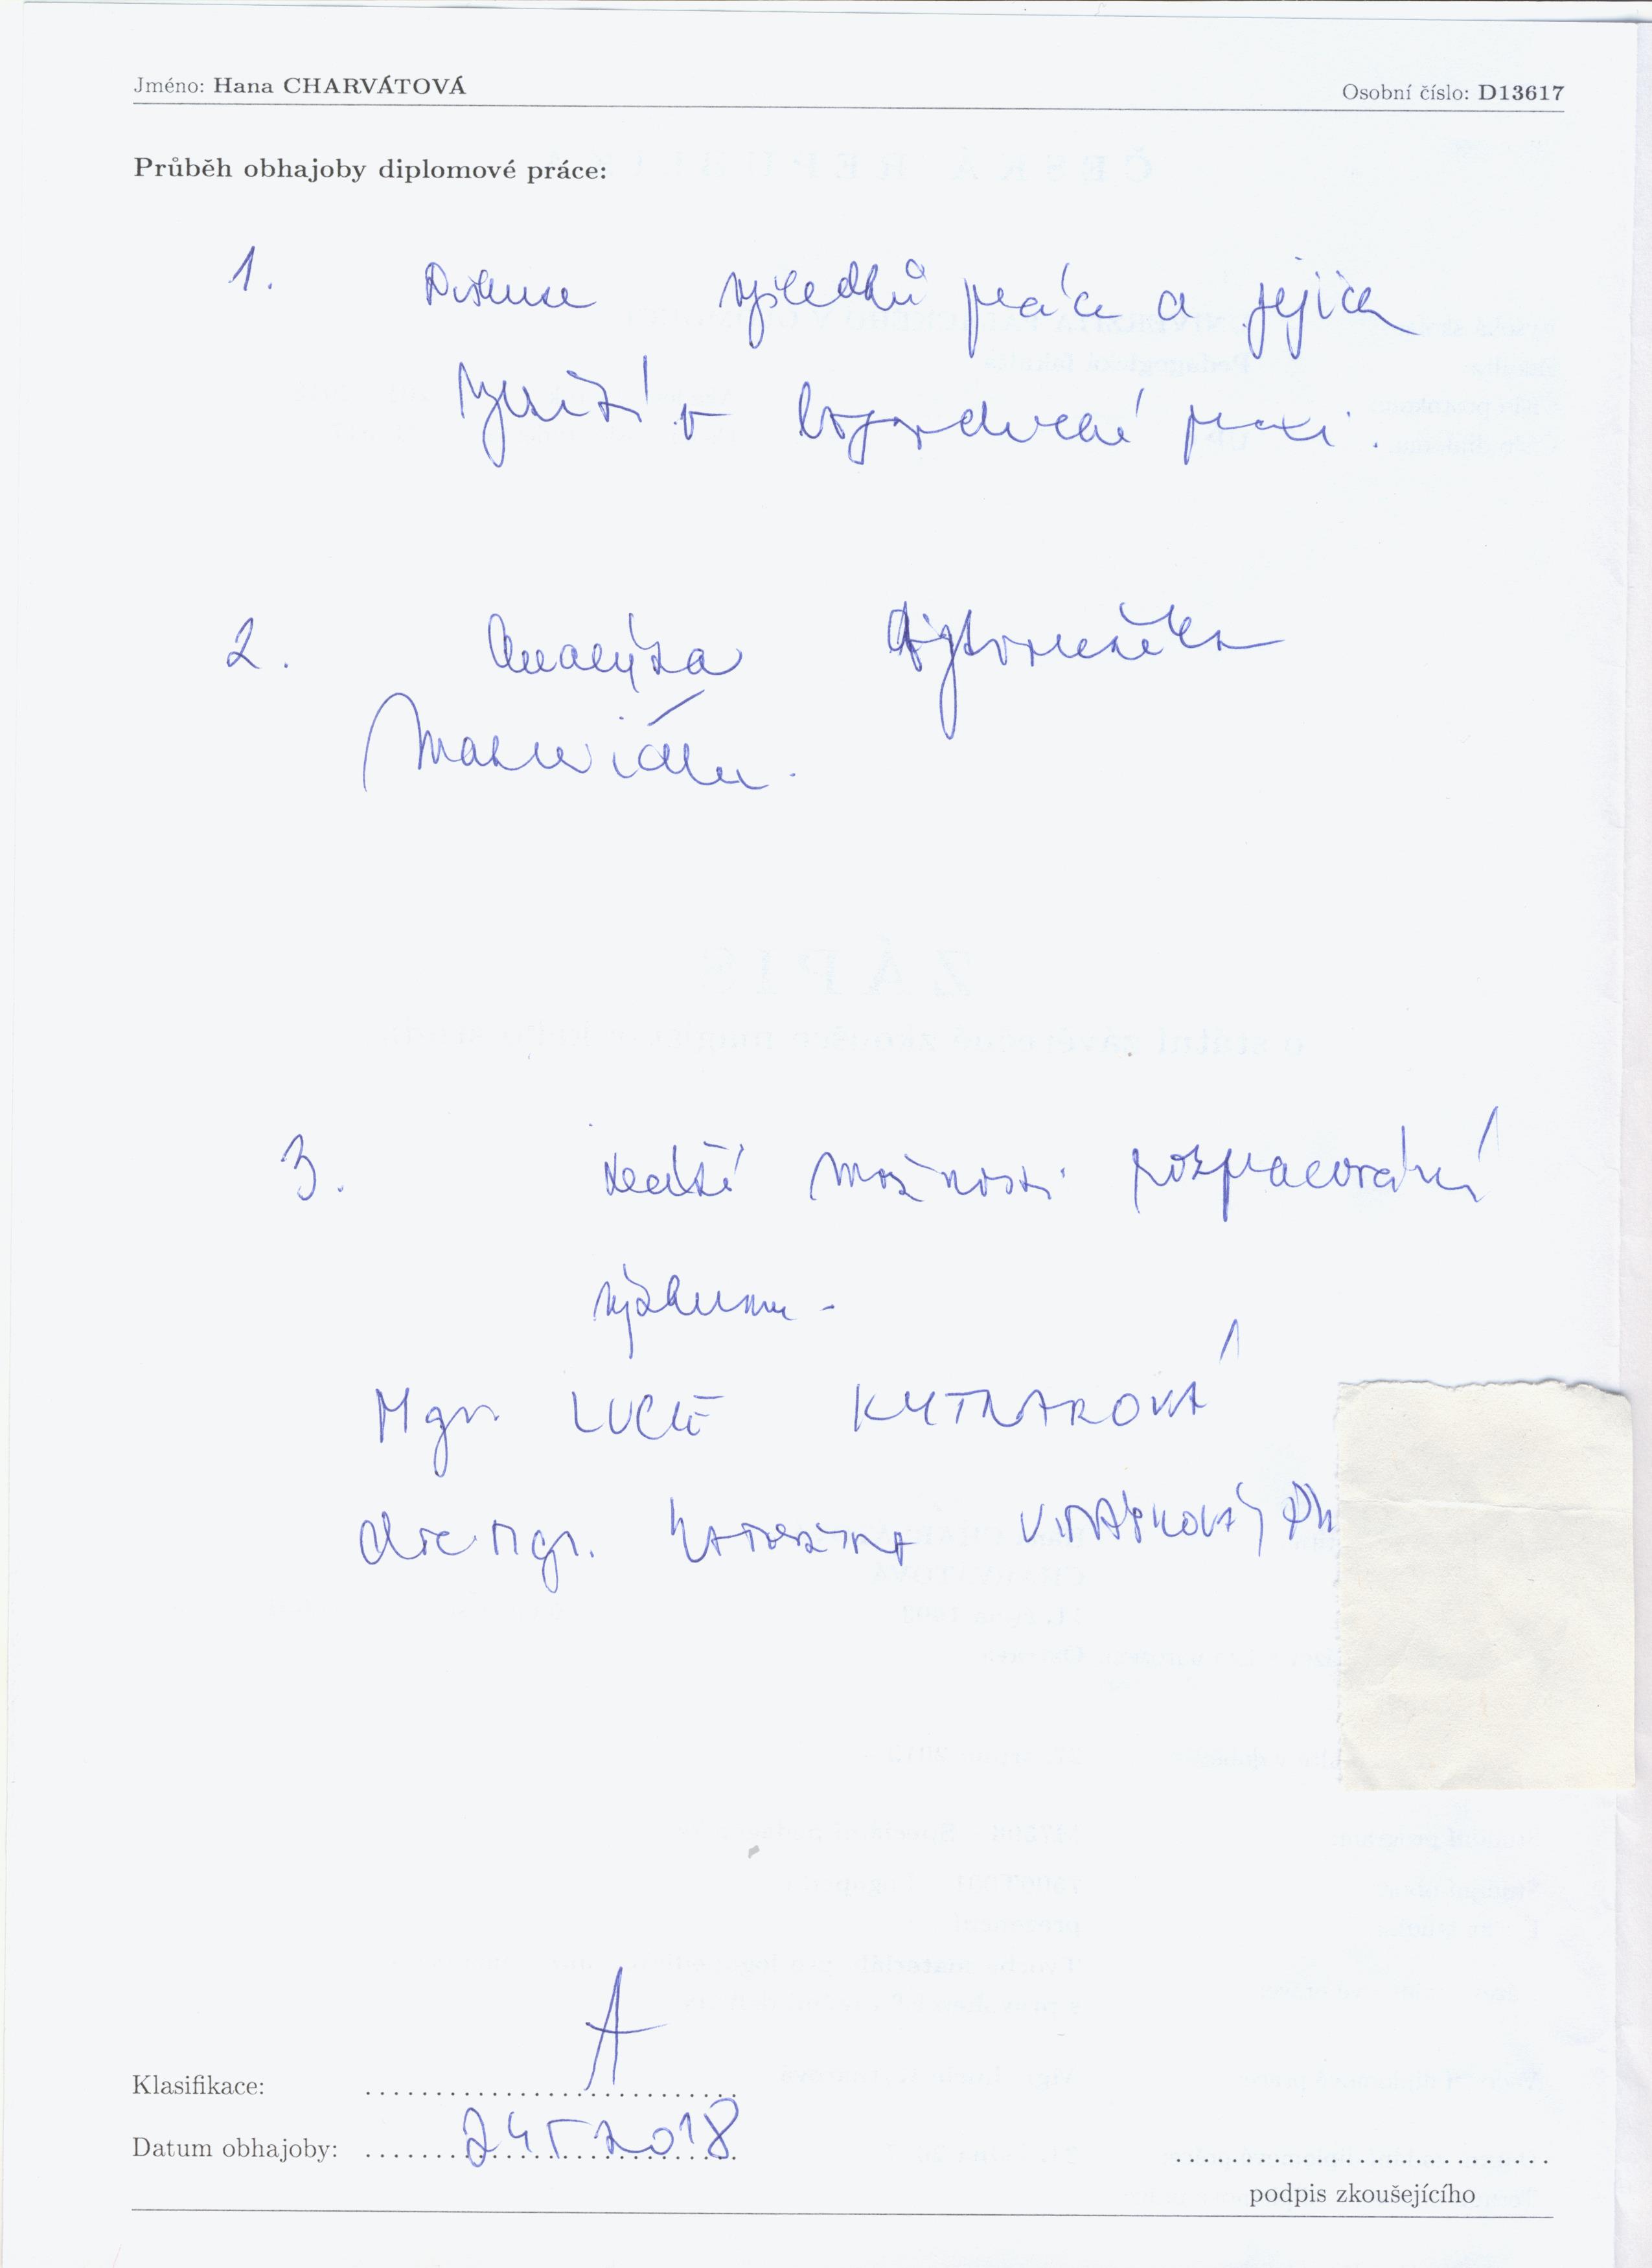 Jméno: Hana CHARVÁTOVÁ
Osobní číslo: D13617
Průběh obhajoby diplomové práce:
1. Diskuse výsledků práce a jejich
využití v logopedické praxi.
2. Analýza
materiálu.
3. Další možnosti rozpracování
výzkumu -
Mgr. LUCIE KYTNAROVÁ
doc. Mgr. KATEŘINA VITÁSKOVÁ, Ph
A
Klasifikace:
24 5 2018
Datum obhajoby:
podpis zkoušejícího